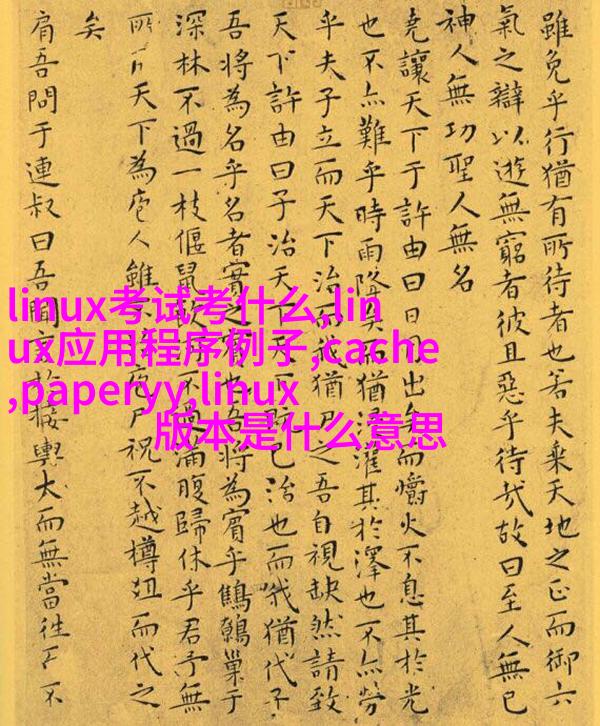 雖免乎行猶有所待者也若夫乘天地之正而御六
氣之辯以遊無窮者彼且惡乎待哉故曰至人無己
神人無功聖人無名
堯讓天下于許由曰日月出矣而爝火不息其於光
也不亦難乎時雨降矣而猶浸灌其於澤也不亦勞
乎夫子立而天下治而我猶尸之吾自視缺然請致
天下許由曰子治天下天下既已治也而我猶代子
吾將為名乎名者實之賓也吾將為賓乎鷦鷯巢于
深林不過一枝偃鼠飲河不過滿腹歸休乎君予無
所用天下為庖人雖不治庖尸祝不越樽俎而代之
矣
肩吾問于連叔曰吾聞言於接輿大而無當往而不
linux考试考什么,lin
ux应用程序例子,cache
,paperyy,linux
版本是什么意思